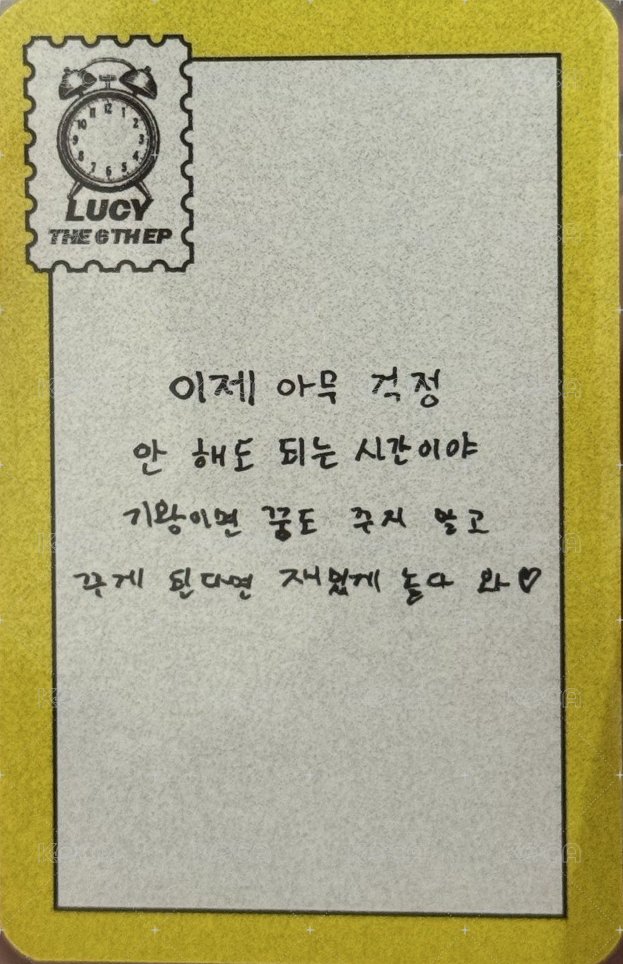 12
1
2
3
4
5
6
7
8
9
10
11
LUCY
THE 6TH EP
이제 아무 걱정
안 해도 되는 시간이야
기왕이면 꿈도 꾸지 말고
꾸게 된다면 재밌게 놀다 와♡